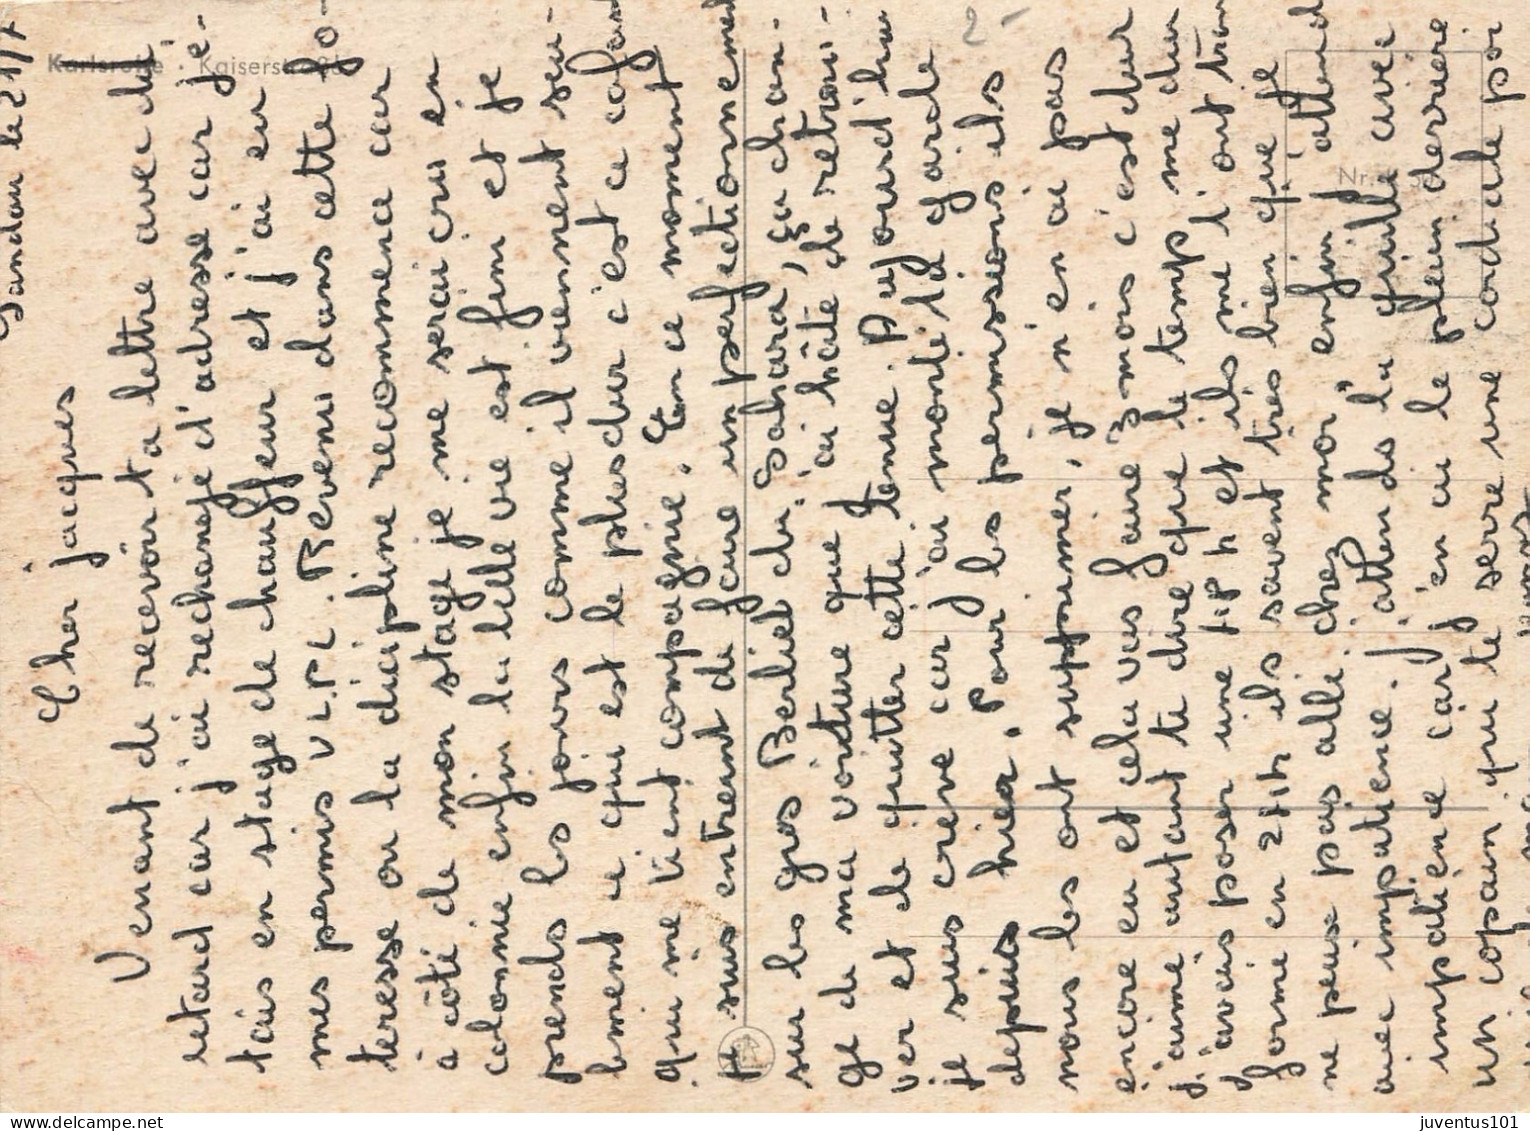 Landau le 21/7
Cher jacques
Venant de recevoir ta lettre avec du
retard car j'ai rechangé d'adresse car j'é-
tais en stage de chauffeur et j'ai eu
mes permis VL.PL. Revenu dans cette fo-
teresse ou la dicipline recommence car
à côté de mon stage je me serai cru en
colonnie enfin la belle vie est fini et je
prends les jours comme il viennent seu-
lement ce qui est le plus dur c'est ce cafard
qui me tient compagnie. En ce moment
je suis entrent de faire un perfectionnement
sur les gros Berliet du Sahara, ça chan-
ge de ma voiture que j'ai hâte de retrou-
ver et de quitter cette tenue. Aujourd'hui
je suis crevé car j'ai monté la garde
depuis hier. Pour les permissions ils
nous les ont supprimer, je n'en ai pas
encore eu et cela vas faire 3 mois c'est dur
j'aime autant te dire que le temps me dur
j'avais poser une 48 h et ils me l'ont tran
formé en 24h ils savent très bien que je
ne peux pas allé chez moi, enfin j'attend
avec impatience. j'attends la "quille" avec
impatience car j'en ai le plein derrière
un copain qui te serre une cordiale poi